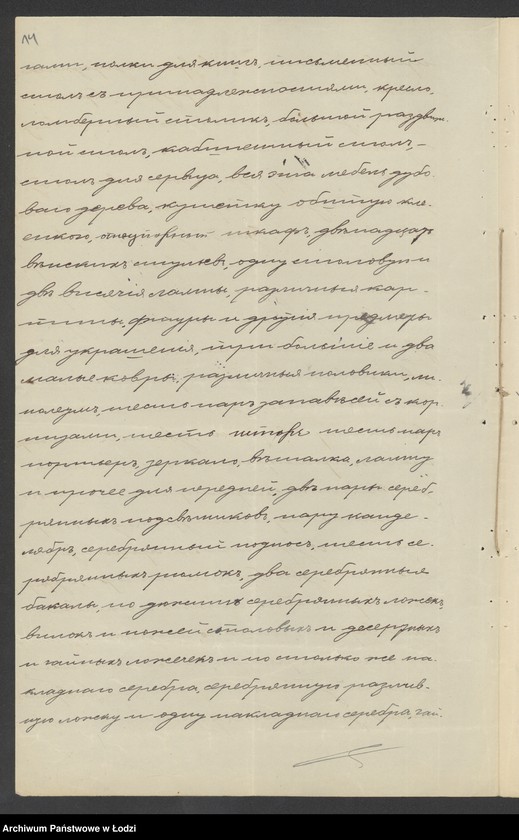 14
лами, полки для книгъ, письменный
столъ съ принадлежностями, кресло,
ломберный столикъ, большой раздвиж-
ной столъ, кабинетный столъ,
столъ для сервиза, вся эта мебель дубо-
ваго дерева, кушетку обитую кле-
енкою, шкафъ, двѣнадцать
вѣнскихъ стульевъ, одну столовую и
двѣ висячія лампы, различныя кар-
тины, фигуры и другія предметы
для украшенія, три большіе и два
малые ковры, различныя половики, ли-
нолеумъ, шесть паръ занавѣсей съ кар-
низами, шесть шторъ шесть паръ
портьеръ, зеркало, вѣшалка, лампу
и прочее для передней, двѣ пары сереб-
рянныхъ подсвѣчниковъ, пару канде-
лябръ, серебрянный подносъ, шесть се-
ребрянныхъ рюмокъ, два серебрянные
бакалы, по дюжинѣ серебрянныхъ ложекъ,
вилокъ и ножей столовыхъ и десертныхъ
и чайныхъ ложечекъ и по столько же на-
кладнаго серебра, серебрянную разлив-
ную ложку и одну накладнаго серебра, чай-
Archiwum Państwowe w Łodzi